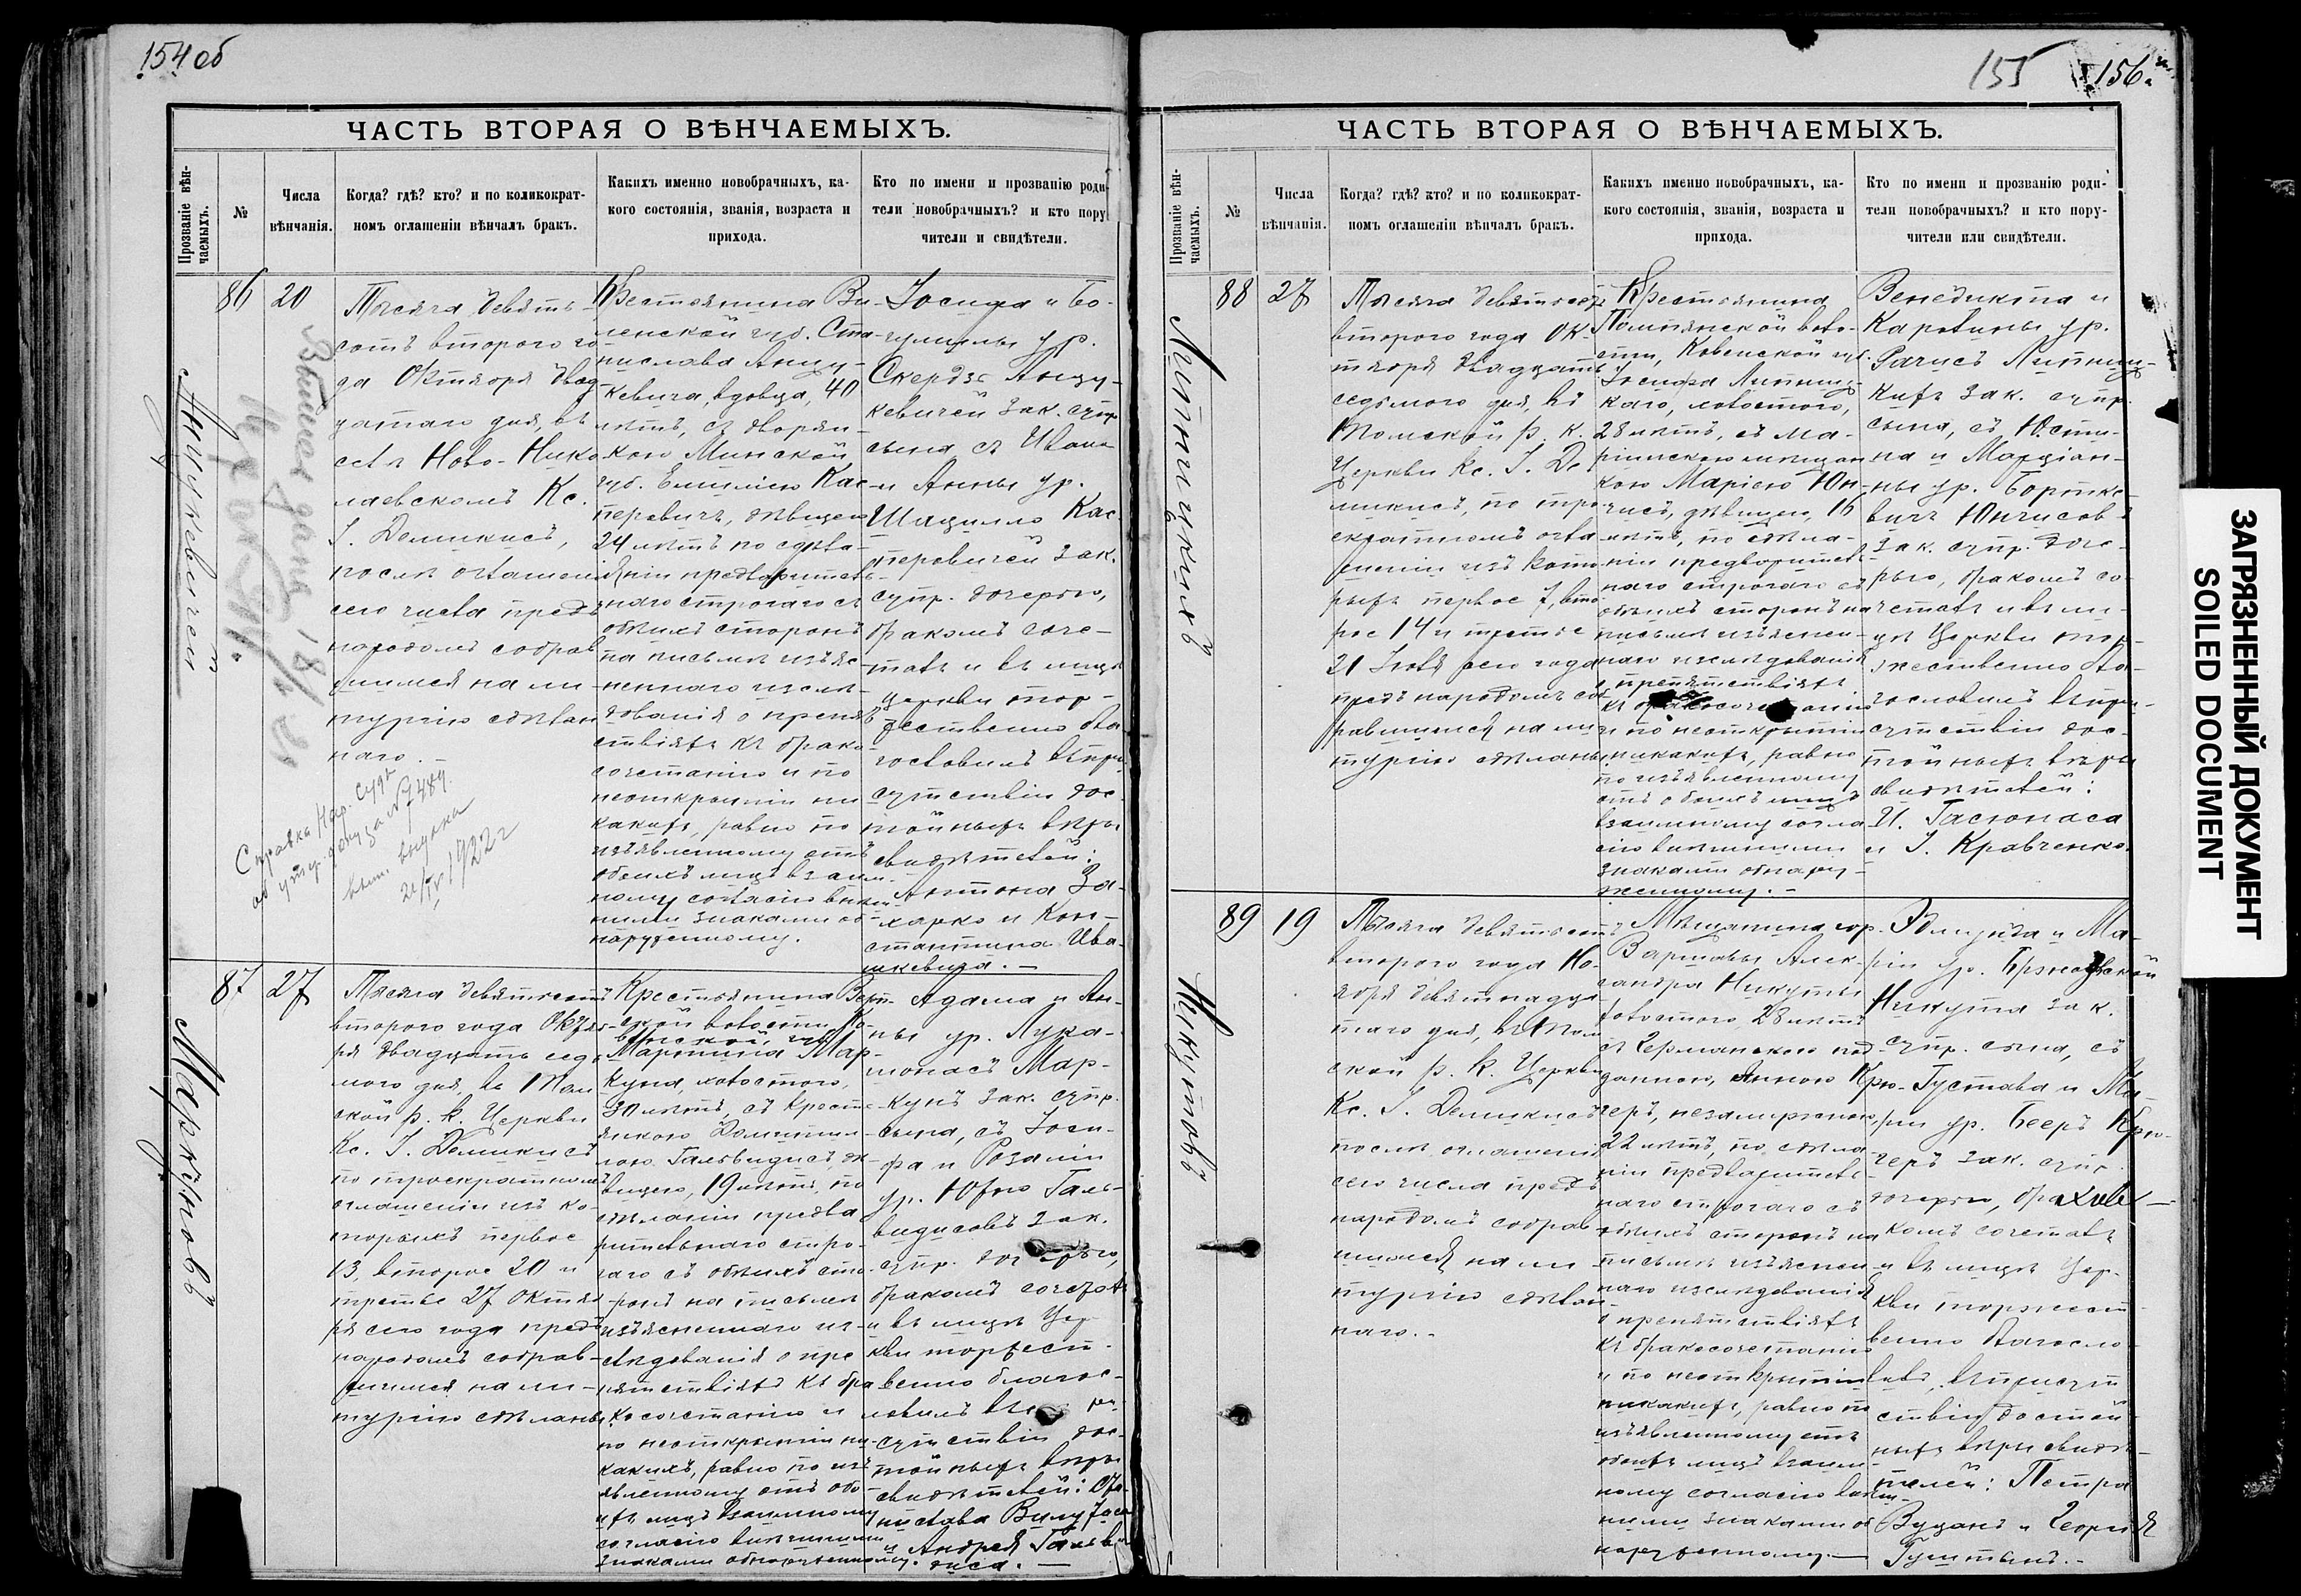 154 об
ЧАСТЬ ВТОРАЯ О ВѢНЧАЕМЫХЪ.
Прозваніе вѣн-
чаемыхъ.
№
Числа
вѣнчанія.
Когда? гдѣ? кто? и по коликократ-
номъ оглашеніи вѣнчалъ бракъ.
Какихъ именно новобрачныхъ, ка-
кого состоянія, званія, возраста и
прихода.
Кто по имени и прозванію роди-
тели новобрачныхъ? и кто пору
чители и свидѣтели.
86
20
Тысяча девять
сотъ второго го
да Октября двад
цатаго дня, въ
селѣ Ново-Нико
лаевскомъ Кс.
І. Демикисъ,
послѣ оглашенія
сего числа предъ
народомъ собрав
шимся на ли
тургію сдѣлан
наго.
Крестьянина Ви-
ленской губ. Ста-
нислава Анцу-
кевича, вдовца, 40
лѣтъ, съ дворян-
кою Минской
губ. Емиліею Кас
перовичъ, дѣвицею
24 лѣтъ по сдѣла-
ніи предваритель
наго строгаго съ
обѣихъ сторонъ
на письмѣ изъяс
неннаго изслѣ-
дованія о препят
ствіяхъ къ брако
сочетанію и по
неоткрытіи ни
какихъ, равно по
изъявленному отъ
обоихъ лицъ взаим
ному согласію внѣш
ними знаками об
наруженному.
Іосифа и Бо-
гумилы ур.
Скердзь Анцу-
кевичей зак. супр
сына съ Ивана
и Анны ур.
Шацилло Кас
перовичей зак.
супр. дочерью,
бракомъ соче-
талъ и въ лицѣ
церкви тор-
жественно бла
гословилъ въ при
сутствіи дос
тойныхъ вѣры
свидѣтелей:
Антона За-
харко и Кон-
стантина Ива-
шкевича. —
Анцукевичей
Справка Нар. суда
выдана
21/IV 1922 г
87
27
Тысяча девятьсотъ
второго года Октяб
ря двадцать седь
мого дня, въ Том
ской р. к. Церкви
Кс. І. Демикисъ
по троекратномъ
оглашеніи изъ ко-
торыхъ первое
13, второе 20 и
третье 27 Октяб
ря сего года предъ
народомъ собрав-
шимся на ли-
тургію сдѣланы
Крестьянина
Ко-
венской губ.
Мартина Мар
куна, холостого,
30 лѣтъ, съ крест
янкою
дѣ
вицею, 19 лѣтъ, по
сдѣланіи предва
рительнаго стро-
гаго съ обѣихъ сто
ронъ на письмѣ
изъясненнаго из-
слѣдованія о пре
пятствіяхъ къ бра
косочетанію и
по неоткрытіи ни
какихъ, равно по изъ
явленному отъ обо
ихъ лицъ взаимному
согласію внѣшними
знаками обнаруженному.
Адама и Ан-
ны ур. Лука-
монасъ Мар-
кунъ зак. супр.
сына, съ Іоси-
фа и Розаліи
ур. Юхно Галь-
видисовъ зак.
супр. дочерью,
бракомъ сочеталъ
и въ лицѣ Цер
кви торжест-
венно благос-
ловилъ въ при
сутствіи дос-
тойныхъ вѣры
свидѣтелей:
и Андрея Гальви
диса. —
Маркуновъ
155
156
ЧАСТЬ ВТОРАЯ О ВѢНЧАЕМЫХЪ.
Прозваніе вѣн-
чаемыхъ.
№
Числа
вѣнчанія.
Когда? гдѣ? кто? и по коликократ-
номъ оглашеніи вѣнчалъ бракъ.
Какихъ именно новобрачныхъ, ка-
кого состоянія, званія, возраста и
прихода.
Кто по имени и прозванію роди-
тели новобрачныхъ? и кто пору-
чители или свидѣтели.
88
27
Тысяча девятьсотъ
второго года Ок-
тября двадцать
седьмого дня, въ
Томской р. к.
Церкви Кс. І. Де
микисъ, по тро
екратномъ огла
шеніи изъ кото
рыхъ первое 7, вто
рое 14 и третье
21 Іюля сего года
предъ народомъ соб
равшимся на ли
тургію сдѣланы
Крестьянина
воло-
сти, Ковенской губ.
Іосифа Липниц-
каго, холостого,
28 лѣтъ, съ Ма-
ріинскою мѣщан
кою Маріею Юн-
чисъ, дѣвицею, 16
лѣтъ, по сдѣла-
ніи предварительн
наго строгаго съ
обѣихъ сторонъ на
письмѣ изъяснен-
наго изслѣдованія
о препятствіяхъ
къ бракосочетанію
и по неоткрытіи
никакихъ, равно
по изъявленному
отъ обоихъ лицъ
взаимному согла
сію внѣшними
знаками обнару-
женному. —
Венедикта и
Каролины ур.
Рачисъ Липниц-
кихъ зак. супр.
сына, съ Юсти-
на и Марціан-
ны ур. Бортке-
вичъ Юнчисовъ
зак. супр. доче-
рью, бракомъ со-
четалъ и въ ли-
цѣ Церкви тор-
жественно бла-
гословилъ въ при-
сутствіи дос-
тойныхъ вѣры
свидѣтелей:
И. Гасюнаса
и І. Кравченко.
Липницкихъ
89
19
Тысяча девятьсотъ
второго года Но-
ября девятнадца
таго дня, въ Том
ской р. к. Церкви
Кс. І. Демикисъ
послѣ оглашенія
сего числа предъ
народомъ собрав
шимся на ли
тургію сдѣлан-
наго. -
Мѣщанина гор.
Варшавы Алек-
сандра Никуты
холостого 28 лѣтъ
съ Германскою под
данною, Анною Крю-
геръ, незамужнею,
22 лѣтъ, по сдѣла
ніи предваритель-
наго строгаго съ
обѣихъ сторонъ на
письмѣ изъяснен-
наго изслѣдованія
о препятствіяхъ
къ бракосочетанію
и по неоткрытіи
никакихъ, равно по
изъявленному отъ
обоихъ лицъ взаим
ному согласію внѣш
ними знаками об
наруженному —
Эдмунда и Ма-
ріи ур.
Никута зак.
супр. сына, съ
Густава и Ма-
ріи ур. Бееръ Крю-
геръ зак. супр.
дочерью, бра
комъ сочеталъ
и въ лицѣ Цер-
кви торжест-
венно благосло-
вилъ, въ присут
ствіи достой
ныхъ вѣры свидѣ-
телей: Петра
и Георгія
Никутовъ
ЗАГРЯЗНЕННЫЙ ДОКУМЕНТ
SOILED DOCUMENT